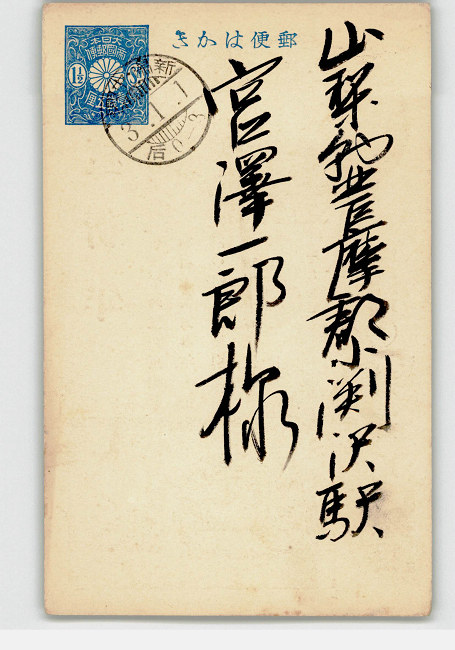 郵便はかき
山梨県北巨摩郡小渕沢駅
宮澤一郎様
大日本帝國郵便
1½
3.1.1
后0-3